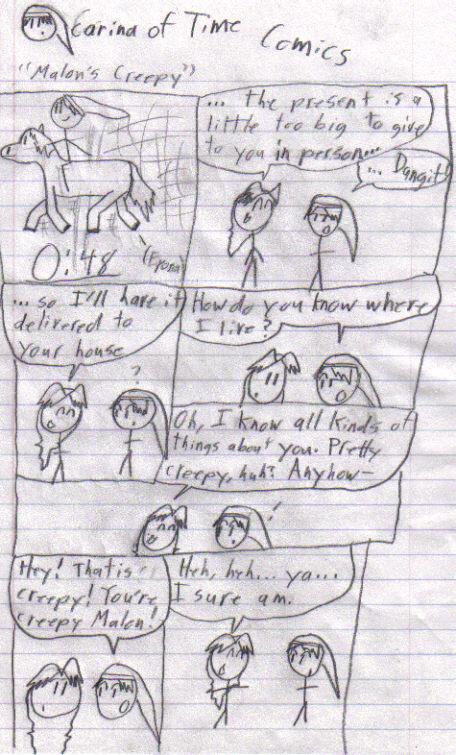 Carina of Time
Comics
"Malon's Creepy"
0:48
... the present is a
little too big to give
to you in person...
... Dangit!
... so I'll have it
delivered to
your house
How do you know where
I live?
?
Oh, I know all kinds of
things about you. Pretty
creepy, huh? Anyhow-
!
Hey! That is
creepy! You're
creepy Malon!
Heh, heh... ya...
I sure am.